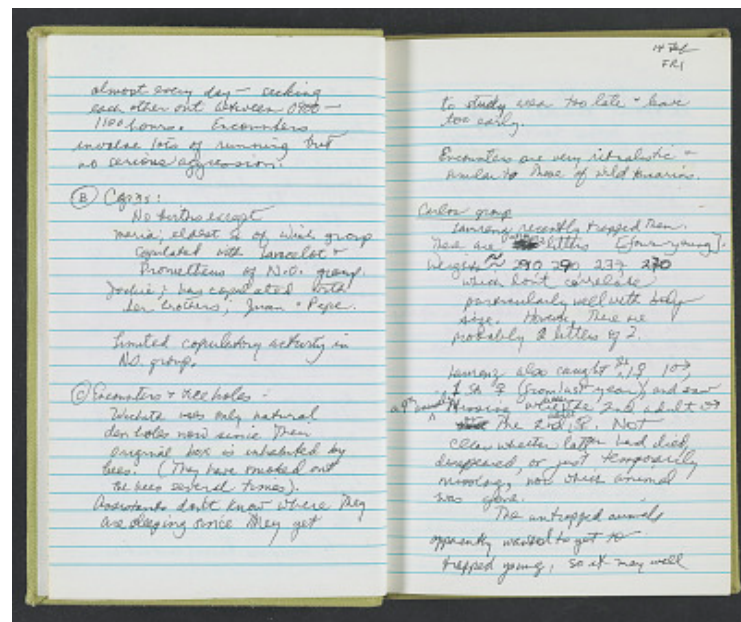 almost every day – seeking
each other out between 0900 –
1100 hours. Encounters
involve lots of running but
no serious aggression.
(B) Cages:
No births except
Maria; eldest ♀ of Wied group
copulated with Lancelot +
Prometheus of N.O. group.
has copulated with
her brothers, Juan + Pepe.
Limited copulatory activity in
N.O. group.
(C) Encounters + tree holes –
uses only natural
den holes now since their
original box is inhabited by
bees. (They have smoked out
the bees several times).
Assistants don't know where they
are sleeping since they get
14
FRI
to study area too late + leave
too early.
Encounters are very ritualistic +
similar to those of wild tamarins.
Carlos group
recently trapped them.
There are litters [four young].
Weights ≈ 290 290 237 270
which don't correlate
particularly well with body
size. However, there are
probably 2 litters of 2.
also caught 1♀ 1♂,
1 SA ♀ (from last year), and saw
a 4th
Missing the 2nd adult ♂
the 2nd ♀. Not
clear whether latter had died,
disappeared, or just temporarily
missing, nor which animal
was gone.
The untrapped animals
apparently wanted to get to
trapped young, so it may well